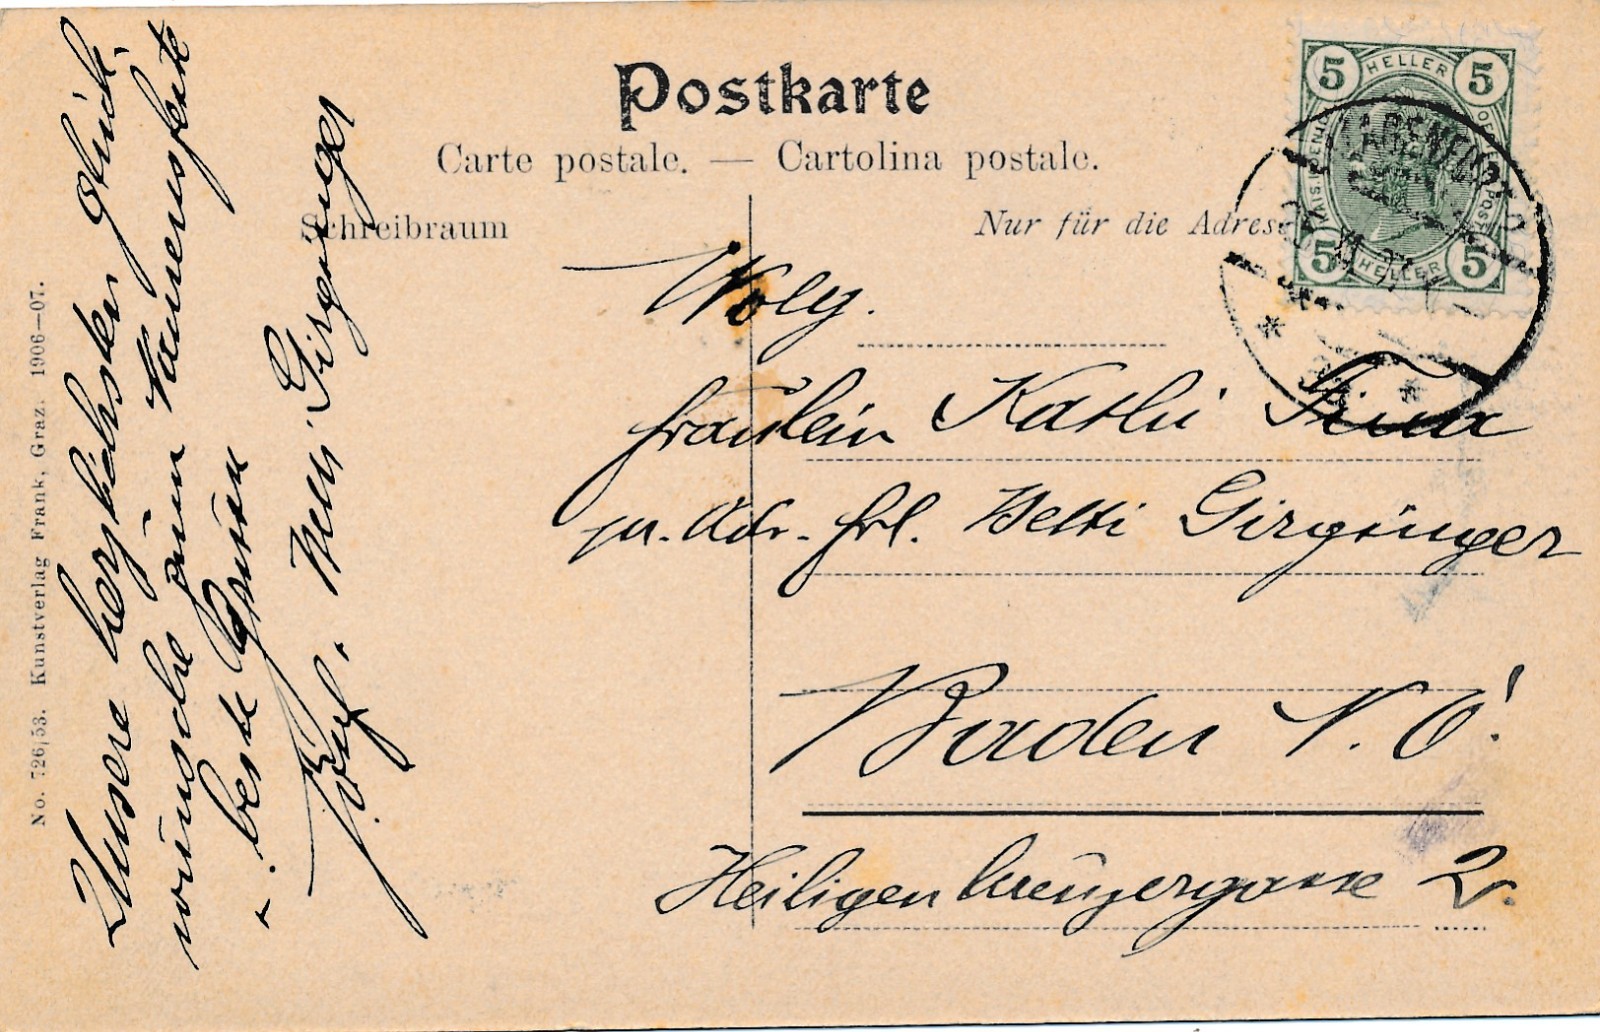 Postkarte
Carte postale. — Cartolina postale.
Schreibraum
Nur für die Adresse
5 HELLER 5
5 HELLER 5
No. 726/53. Kunstverlag Frank, Graz. 1906—07.
Unsere herzlichsten Glück-
wünsche zum Namensfeste
u. beste Grüsse
Josef u. Nelli Girsinger
Wolg.
Fräulein Kathi
pr. Adr. Frl. Betti Girgsinger
Baden N. Ö.
Heiligenkreuzergasse 2.